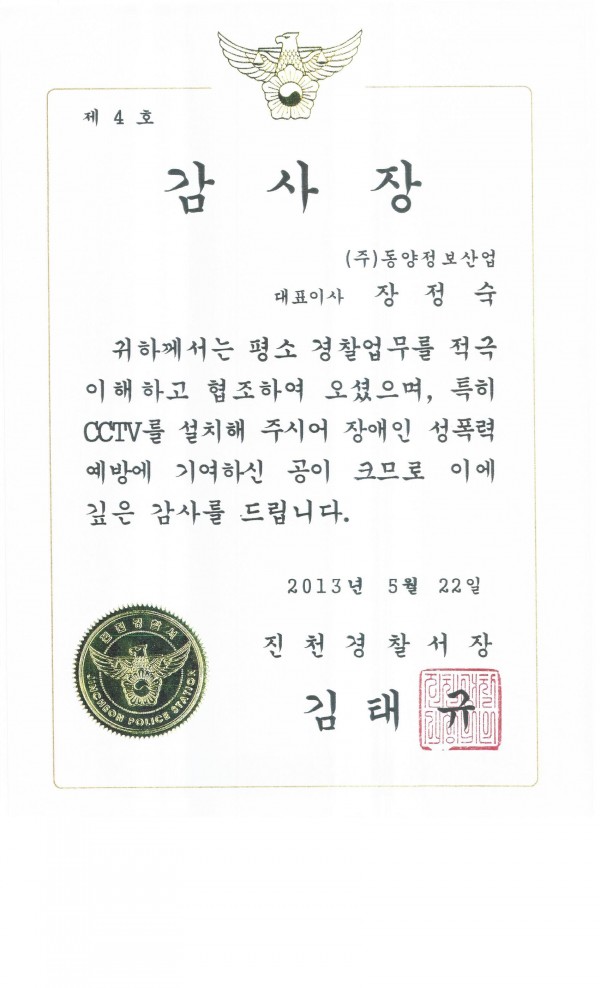 제 4 호
감 사 장
(주)동양정보산업
대표이사 장 정 숙
귀하께서는 평소 경찰업무를 적극
이해하고 협조하여 오셨으며, 특히
CCTV를 설치해 주시어 장애인 성폭력
예방에 기여하신 공이 크므로 이에
깊은 감사를 드립니다.
2013년 5월 22일
진천경찰서장
김 태 규
진천경찰서
JINCHEON POLICE STATION